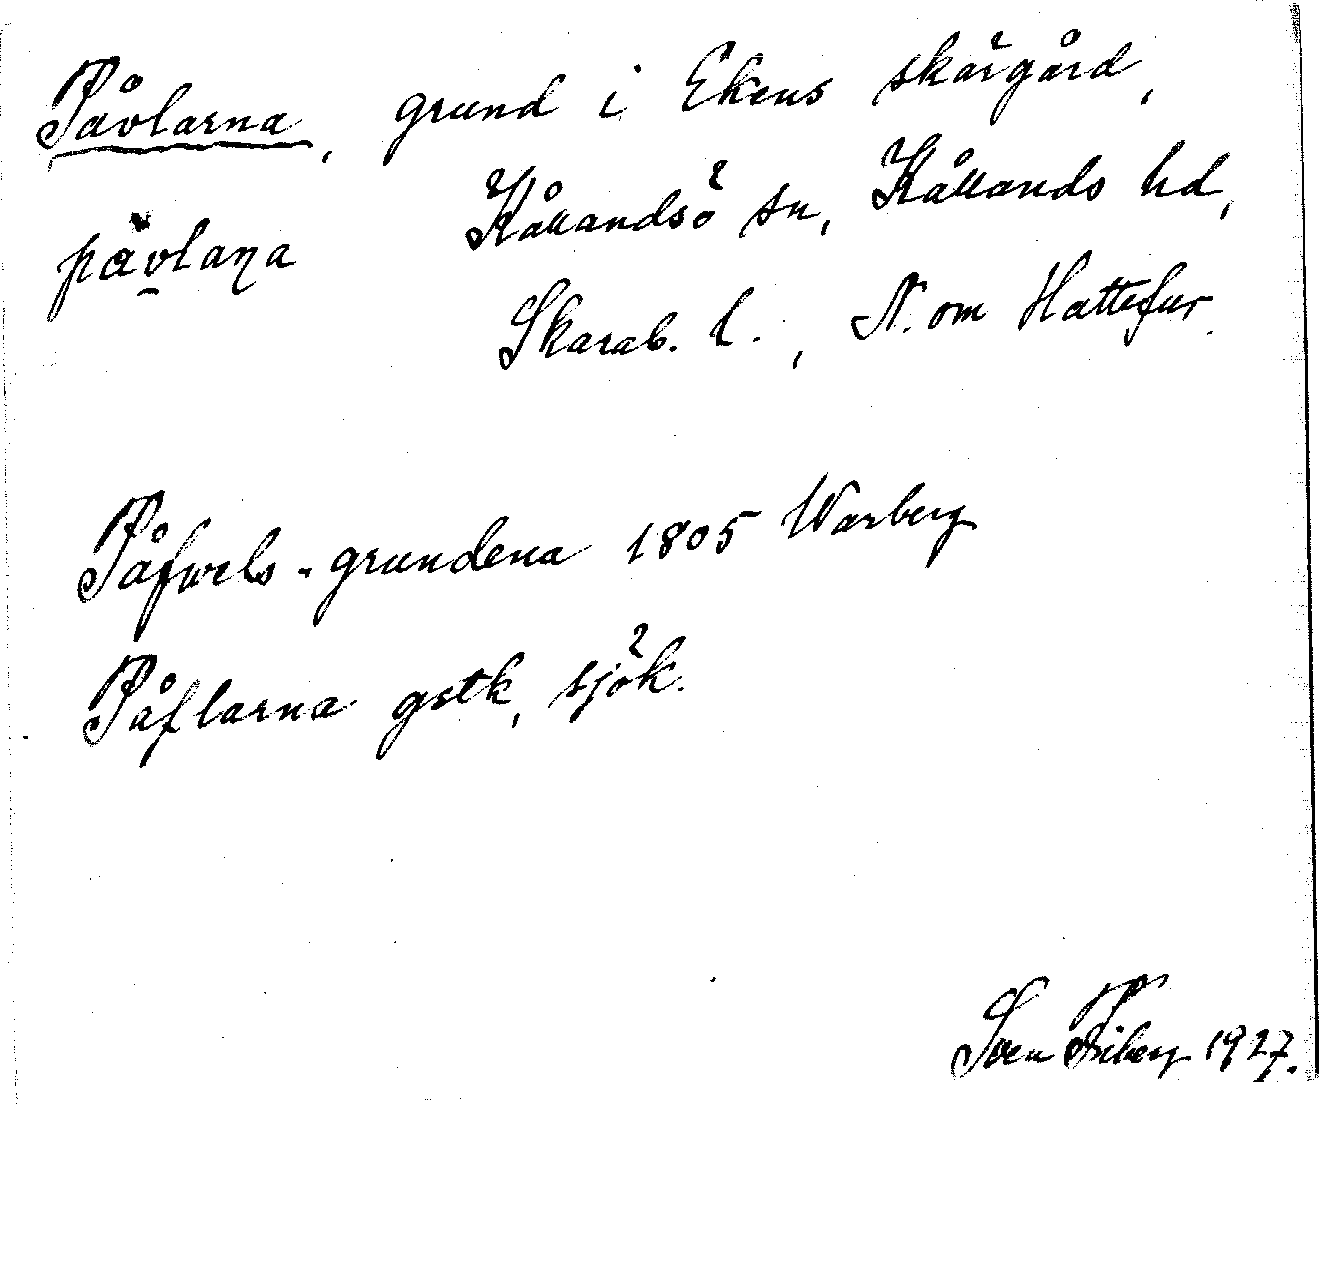 Påvlarna, grund i Ekens skärgård,
Kållandsö sn, Kållands hd,
påvlaɳa
Skarab. l., N. om Hattefur.
Påfwels-grundena 1805 Warberg
Påflarna gstk, sjök.
Sven Friberg 1927.